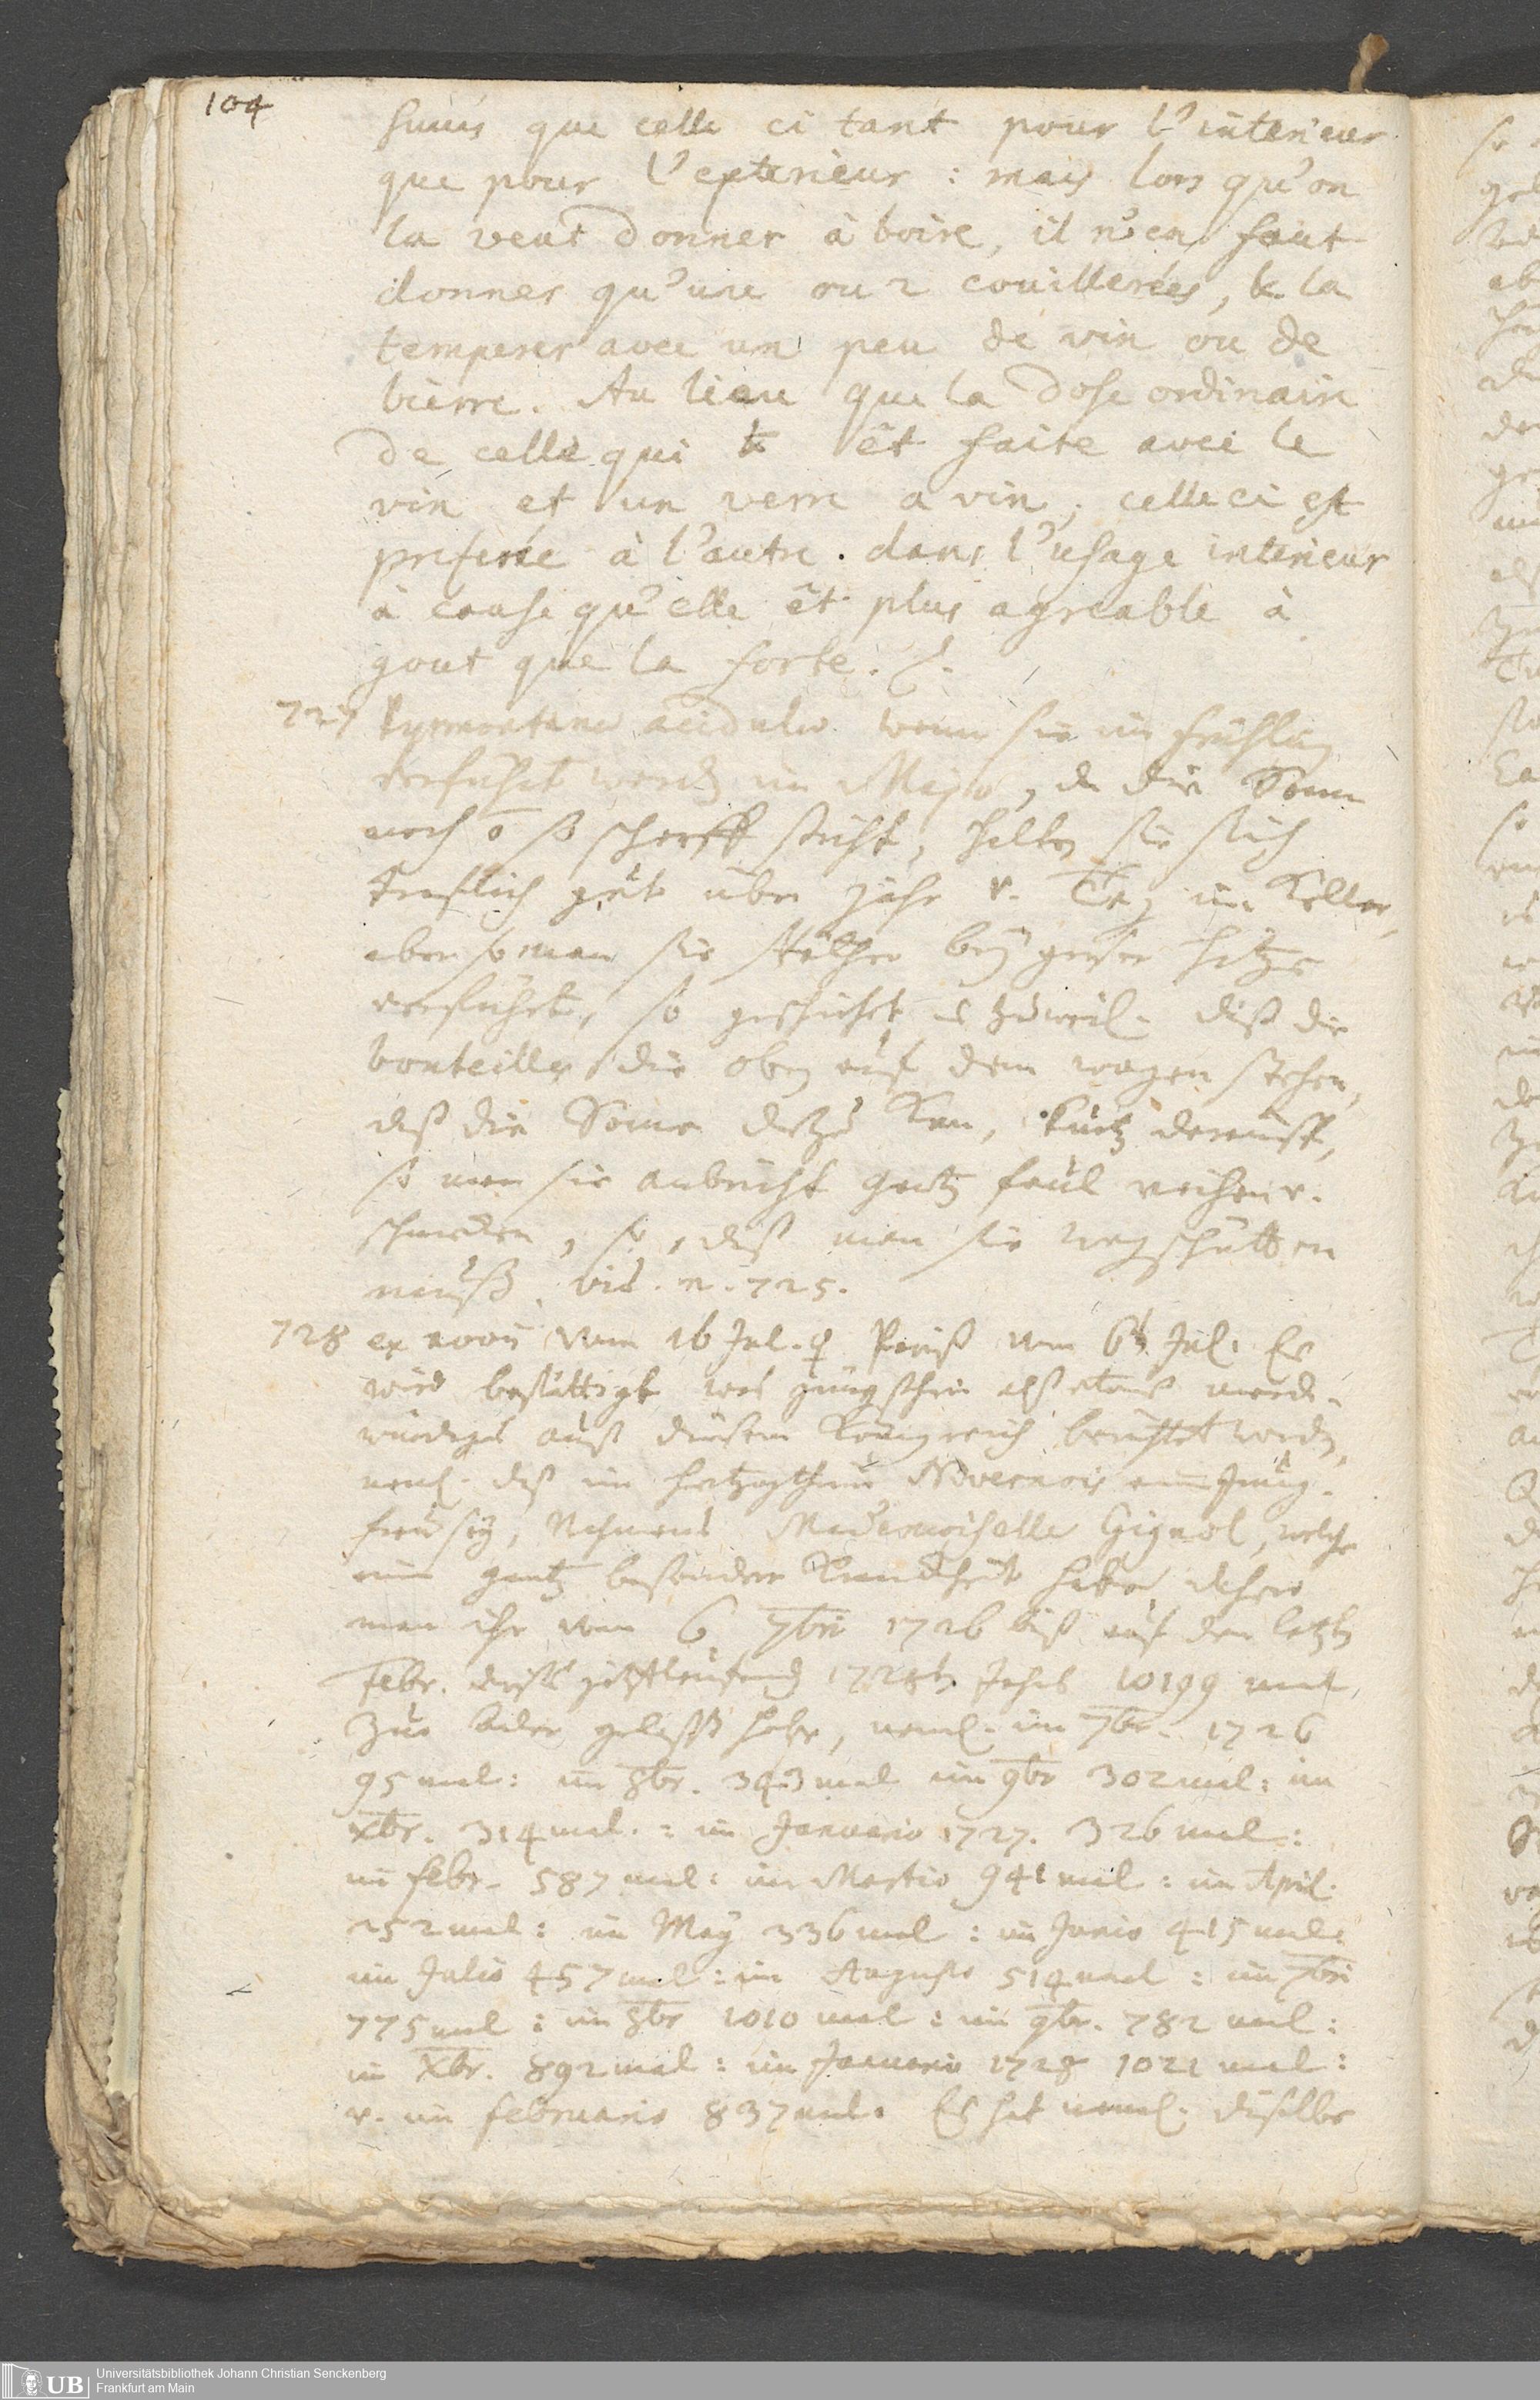 104
suus que celle ci tant pour l'interieur
que pour l'exterieur : mais lors qu'on
la veut donner à boire, il n'en faut
donner qu'une ou 2 couillerées, & la
temperer avec un peu de vin ou de
bierre. Au lieu que la dose ordinaire
de celle qui êt faite avec le
vin et un verre a vin, celle ci est
preferée à l'autre. dans l'usage interieur
à cause qu'elle êt plus agreable à
gout que la forte.
727 Pyrmontanae acidulae wenn sie im Frühling
verführt werden im Majo, da die Sonn
noch so scharff sticht, halten sie sich
trefflich gut über Jahr u. Tag im Keller,
aber so man sie bey groser Hitze
verführt, so geschicht es zuweil. daß die
bouteillen die oben auf dem wagen stehen,
daß die Sonne dazu kan, kurtz darauff,
so man sie anbricht gantz faul riechen u.
schmecken, so, daß man sie wegschütten
muß. vid. n. 725.
728 ex vom 16 Jul. ♀ Pariß vom 6t Jul. Es
wird bestättigt was jüngsthin alß etwas merck-
würdiges auß diesem Königreich berichtet worden,
neml. daß im Hertzogthum Nivernois eine Jung-
frau sey, Nahmens Mademoiselle Gignol, welche
eine gantz besondere Kranckheit habe daher
man ihr vom 6 7bri 1726 biß auf den letzten
Febr. dieses jetztlaufend 1728t Jahrs 10199 mal
zur Ader gelassen habe, neml. im 7br. 1726
95 mal: im 8br. 343 mal im 9br 302 mal: im
Xbr. 314 mal. : im Januario 1727. 326 mal:
im febr. 587 mal: im Martio 941 mal: im April.
252 mal: im May 336 mal: im Junio 415 mal:
im Julio 457 mal: im Augusto 514 mal: im 7bri
775 mal: im 8br 1010 mal: im 9br. 782 mal:
im Xbr. 892 mal: im Januario 1728 1021 mal:
u. im februario 837 mal. Es hat neml. dieselbe
Universitätsbibliothek Johann Christian Senckenberg
Frankfurt am Main
UB